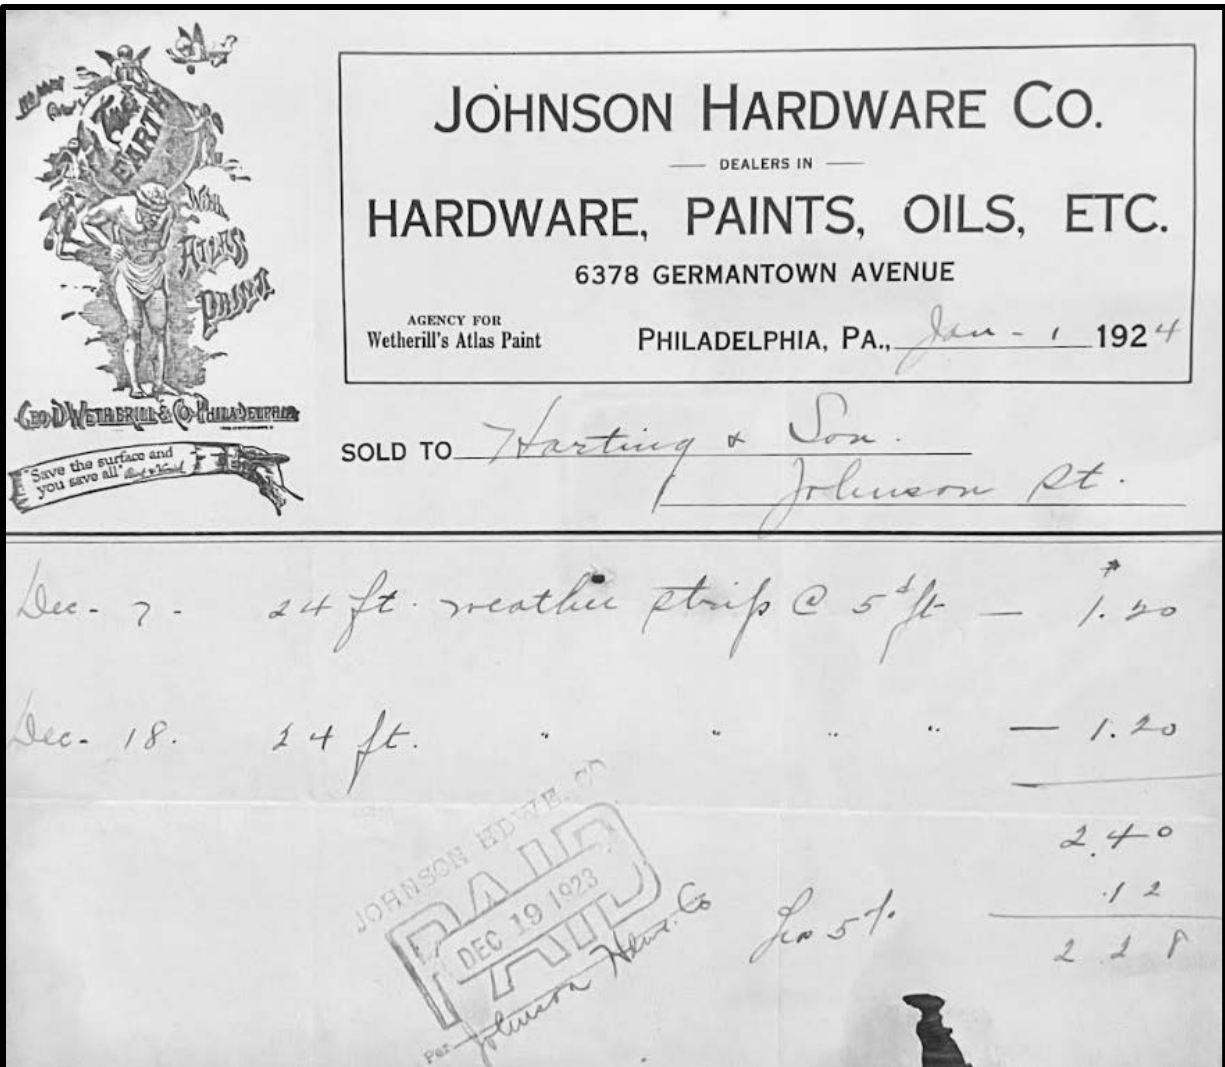 We May Cover
The EARTH
With
ATLAS
PAINT
GEO. D. WETHERILL & CO. PHILADELPHIA
"Save the surface and
you save all"
JOHNSON HARDWARE CO.
DEALERS IN
HARDWARE, PAINTS, OILS, ETC.
6378 GERMANTOWN AVENUE
AGENCY FOR
Wetherill's Atlas Paint
PHILADELPHIA, PA., Jan - 1 1924
SOLD TO Harting & Son.
Johnson St.
Dec - 7 - 24 ft. weather strip @ 5¢ ft — $1.20
Dec - 18. 24 ft. " " " " — 1.20
2.40
Less 5% .12
2.28
JOHNSON HDWE. CO
PAID
DEC 19 1923
Per Johnson Hdwe. Co